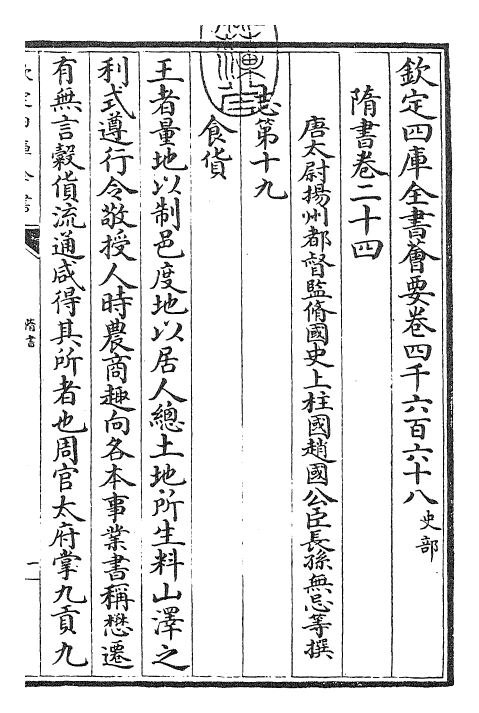 欽定四庫全書薈要卷四千六百六十八史部
隋書卷二十四
唐太尉揚州都督監脩國史上柱國趙國公臣長孫無忌等撰
志第十九
食貨
王者量地以制邑度地以居人總土地所生料山澤之
利式遵行令敬授人時農商趣向各本事業書稱懋遷
有無言穀貨流通咸得其所者也周官太府掌九貢九
隋書
一